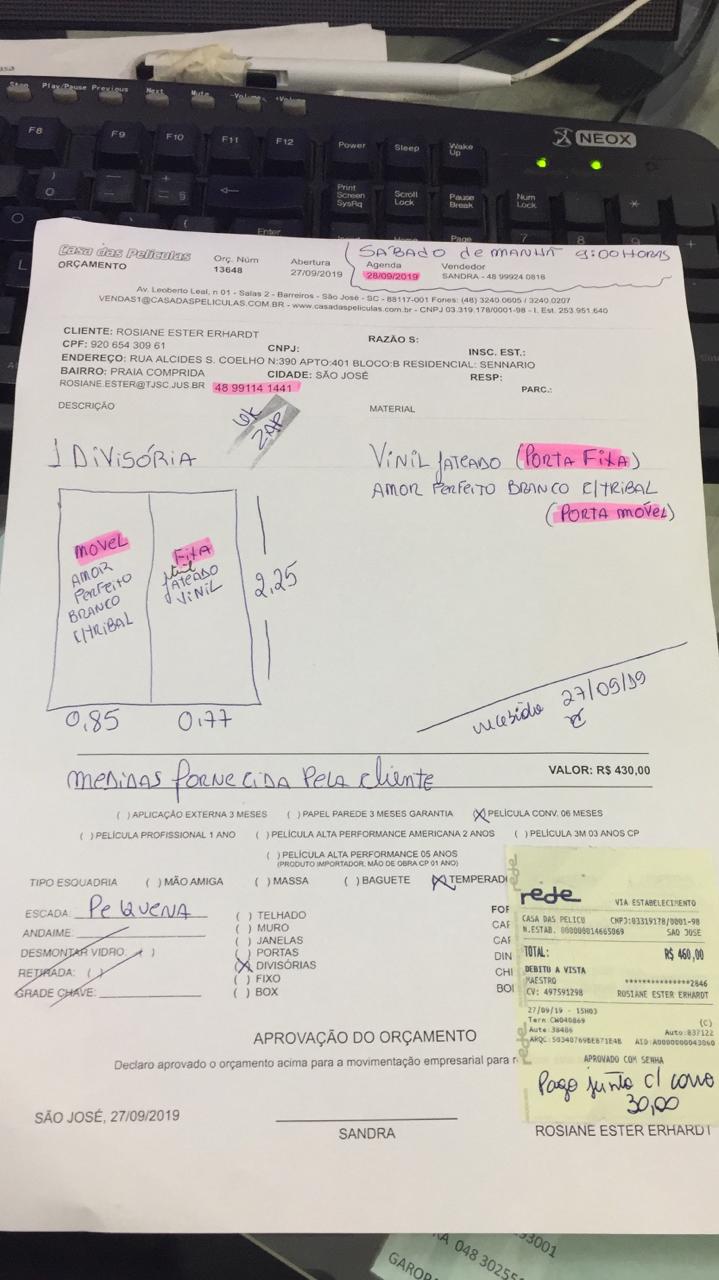 Stop Play/Pause Previous Next Mute -Volume +Volume
F8 F9 F10 F11 F12 Power Sleep Wake Up
NEOX
Print Screen SysRq Scroll Lock Pause Break Num Lock
Enter Home Page 7 8
Casa das Películas
ORÇAMENTO
Orç. Núm
13648
Abertura
27/09/2019
SÁBADO de MANHÃ 9:00 HORAS
Agenda
28/09/2019
Vendedor
SANDRA - 48 99924 0816
Av. Leoberto Leal, n 01 - Salas 2 - Barreiros - São José - SC - 88117-001 Fones: (48) 3240.0605 / 3240.0207
VENDAS1@CASADASPELICULAS.COM.BR - www.casadaspeliculas.com.br - CNPJ 03.319.178/0001-98 - I. Est. 253.951.640
CLIENTE: ROSIANE ESTER ERHARDT RAZÃO S:
CPF: 920 654 309 61 CNPJ: INSC. EST.:
ENDEREÇO: RUA ALCIDES S. COELHO N:390 APTO:401 BLOCO:B RESIDENCIAL: SENNARIO
BAIRRO: PRAIA COMPRIDA CIDADE: SÃO JOSÉ RESP:
ROSIANE.ESTER@TJSC.JUS.BR 48 99114 1441 PARC.:
DESCRIÇÃO MATERIAL
OK
ZAP
1 DIVISÓRIA
VINIL JATEADO (PORTA FIXA)
AMOR PERFEITO BRANCO C/TRIBAL
(PORTA MOVEL)
MOVEL
AMOR
PERFEITO
BRANCO
C/TRIBAL
FIXA
JATEADO
VINIL
2,25
0,85 0,77
recebido 27/09/19
MEDIDAS FORNECIDA PELA cliente
VALOR: R$ 430,00
( ) APLICAÇÃO EXTERNA 3 MESES ( ) PAPEL PAREDE 3 MESES GARANTIA (X) PELÍCULA CONV. 06 MESES
( ) PELÍCULA PROFISSIONAL 1 ANO ( ) PELÍCULA ALTA PERFORMANCE AMERICANA 2 ANOS ( ) PELÍCULA 3M 03 ANOS CP
( ) PELÍCULA ALTA PERFORMANCE 05 ANOS
(PRODUTO IMPORTADOR, MÃO DE OBRA CP 01 ANO)
TIPO ESQUADRIA ( ) MÃO AMIGA ( ) MASSA ( ) BAGUETE (X) TEMPERAD
ESCADA: PEQUENA
ANDAIME:
DESMONTAR VIDRO: ( )
RETIRADA: ( )
GRADE CHAVE:
( ) TELHADO
( ) MURO
( ) JANELAS
( ) PORTAS
(X) DIVISÓRIAS
( ) FIXO
( ) BOX
FOR
CAR
CAR
DIN
CHE
BOL
rede
rede
VIA ESTABELECIMENTO
CASA DAS PELICU CNPJ:03319178/0001-98
N.ESTAB. 000000014665069 SAO JOSE
TOTAL: R$ 460,00
DEBITO A VISTA
MAESTRO ***************2846
CV: 497591298 ROSIANE ESTER ERHARDT
27/09/19 - 15H03
Term CW040869 (C)
Aute:38486 Auto:837122
ARQC:50340769BE871E4B AID:A0000000043060
rede
APROVADO COM SENHA
Pago junto c/ cono
30,00
APROVAÇÃO DO ORÇAMENTO
Declaro aprovado o orçamento acima para a movimentação empresarial para
SÃO JOSÉ, 27/09/2019
SANDRA
ROSIANE ESTER ERHARDT
93001
048 30255
GAROPA